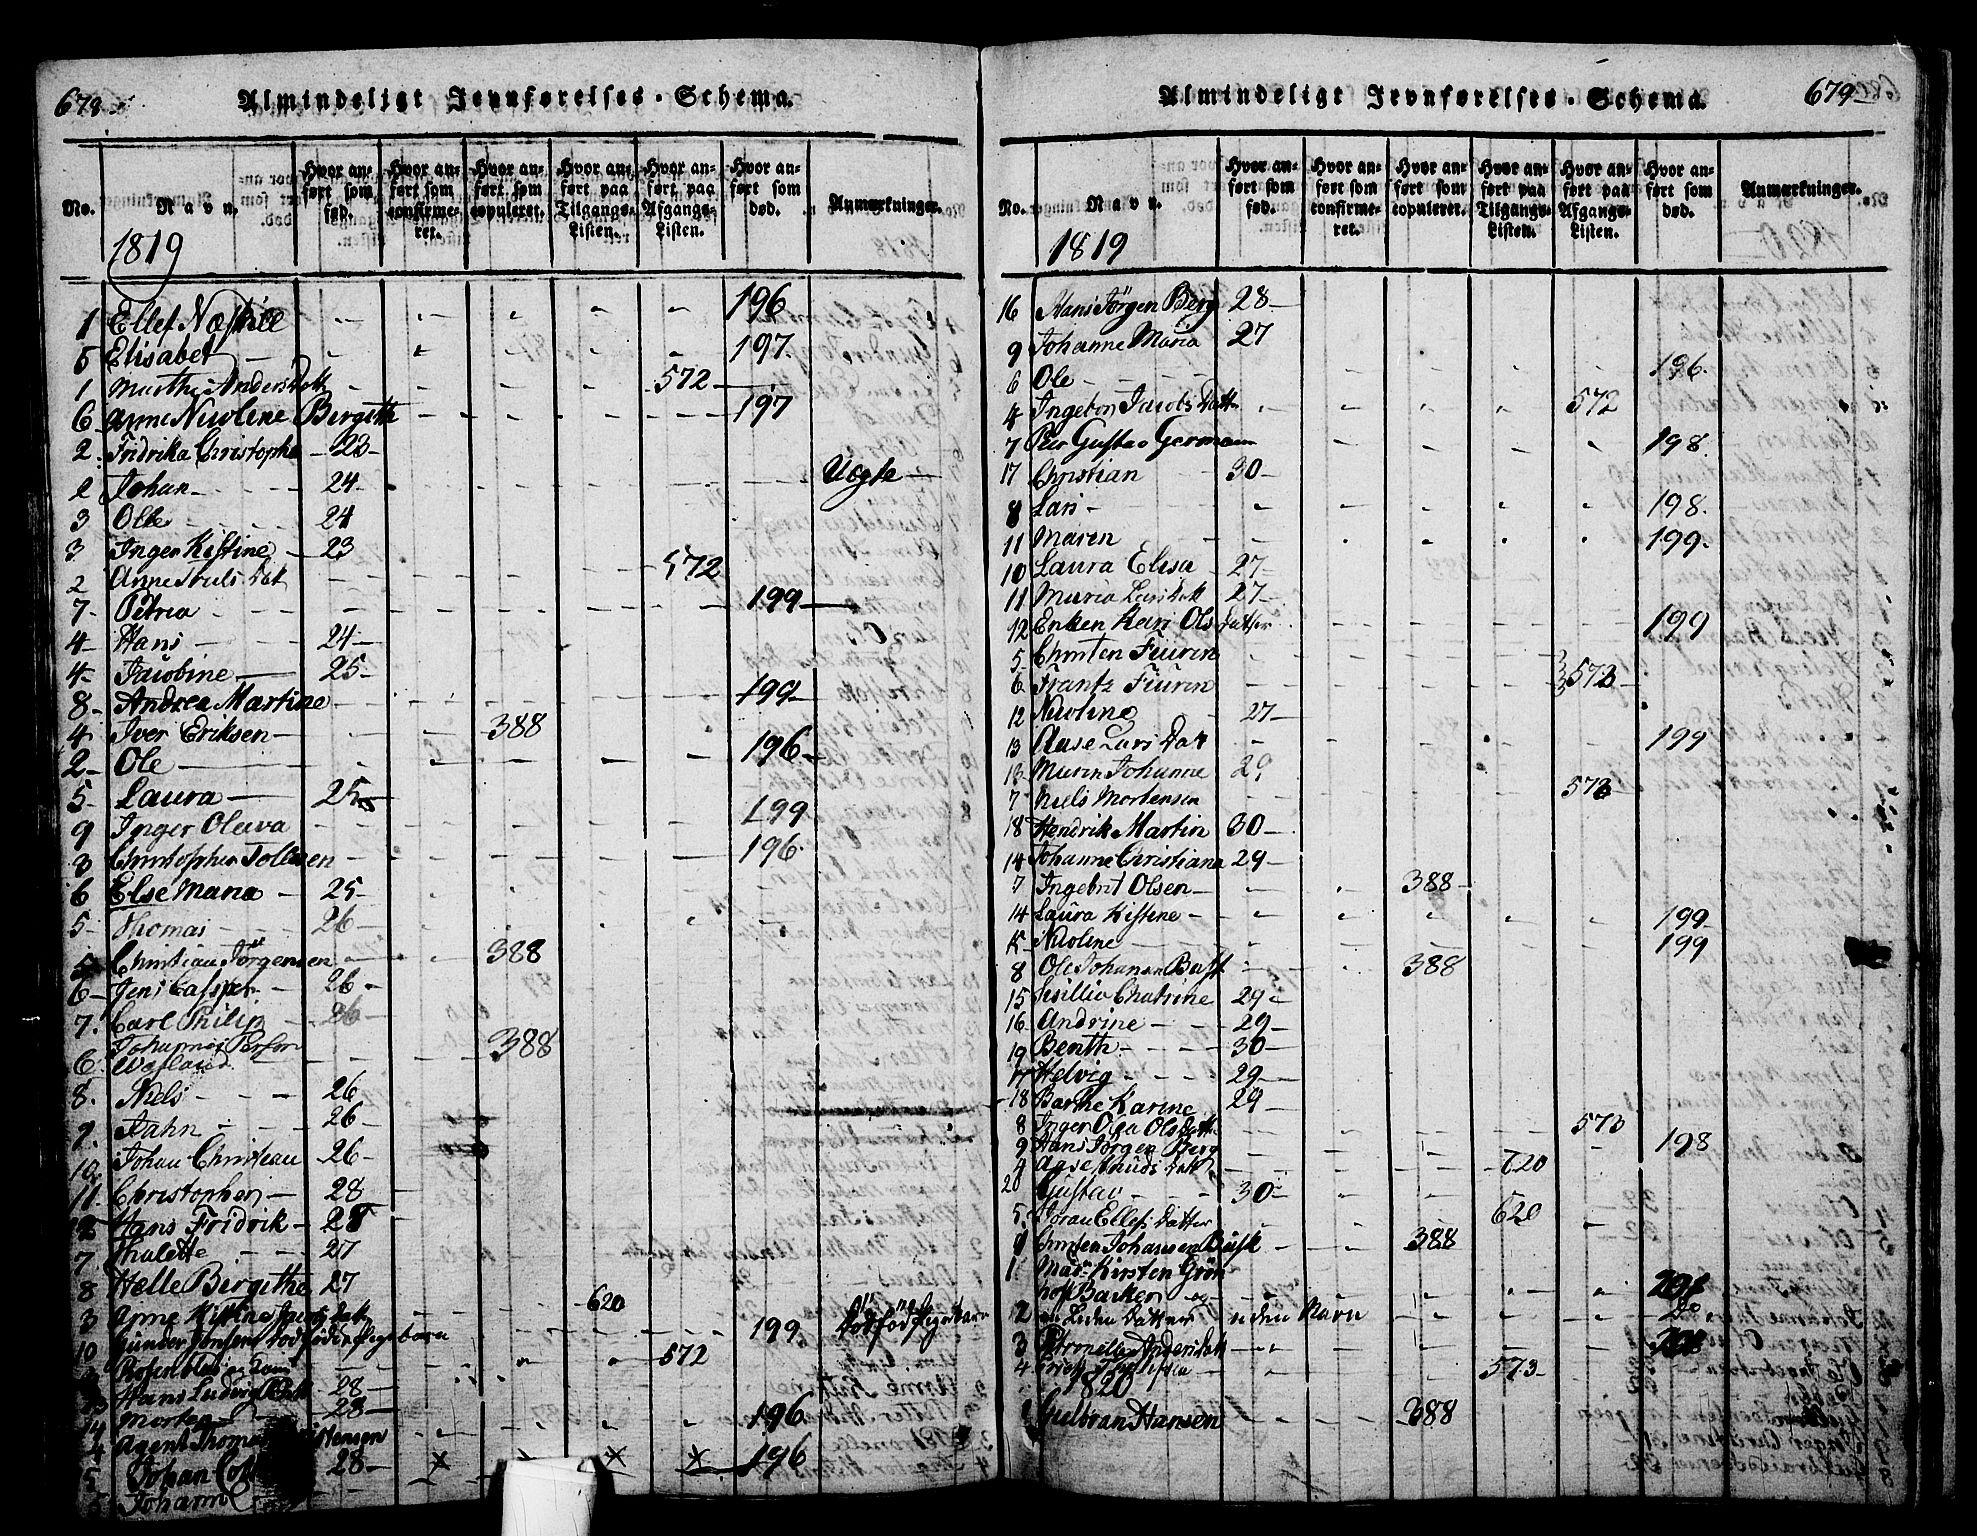 678
Almindeligt Jevnførelses-Schema.
No.
Navn.
Hvor anført som fød.
Hvor anført som confirmeret.
Hvor anført som copuleret.
Hvor anført paa Tilgangs-Listen.
Hvor anført paa Afgangs-Listen.
Hvor anført som død.
Anmærkninger.
1819
1 Ellef 196
5 Elisabet 197
1 Marthe Anders Datt 572
6 Anne Nicoline Birgithe 197
2 Fridrika Christophe 23
2 Johan 24 Uægte
3 Olle 24
3 Inger Kistine 23
2 Anne Datt 572
7 Petria 199
4 Hans 24
4 Jacobine 25
8 Andrea Martine 199
4 Iver Eriksen 388
2 Ole 196
5 Laura 25
9 Inger Olava 199
3 Christopher Tollefsen 196
6 Else Maria 25
5 Thomas 26
5 Christian Jørgensen 388
6 Jens Casper 26
7 Carl Philip 26
Johannes Person
6 388
8 Niels 26
9 26
10 Johan Christian 26
11 Christopher 28
12 Hans Fridrik 28
7 Thalette 27
8 Helle Birgithe 27
3 Anne Kistine Datt 620
10 Gunder Jensens dødfødte Pigebarn 199 dødfød Pigebarn
572
13 Hans Ludvig 28
14 Morten 28
4 Agent Thomas 196
5 Johan 28 196
Johann
679
Almindeligt Jevnførelses-Schema.
No.
Navn.
Hvor anført som fød.
Hvor anført som confirmeret.
Hvor anført som copuleret.
Hvor anført paa Tilgangs-Listen.
Hvor anført paa Afgangs-Listen.
Hvor anført som død.
Anmærkninger.
1819
16 Hans Jörgen Berg 28
9 Johanne Maria 27
6 Ole 196
4 Ingebor Jacobs Datt 572
7 Per Gustav German 198
17 Christian 30
8 Lars 198
11 Maren 199
10 Laura Elisa 27
11 Maria Lars Datt 27
12 Enken Kari Ols Datter 199
5 Christen Fiuren
6 Frantz Fiuren 573
12 Nicoline 27
13 Aase Lars Dat 199
13 Maren Johanne 29
7 Niels Mortensen 573
18 Hendrik Martin 30
14 Johanne Christiane 29
7 Ingebrit Olsen 388
14 Laura Kistine 199
15 Nicoline 199
8 Ole Johansen 388
15 Sesillia Chatrine 29
16 Andrine 29
19 Benth 30
17 Helvig 29
18 Barthe Karine 29
8 Inger Olea Ols Datt 573
9 Hans Jörgen Berg 198
4 Aase Knuds Datt 620
20 Gustav 30
5 Joran Ellefs Datter 620
9 Christen Johansen Busk 388
1 Mad: Kirsten Grön
hof Backer og
2 Liden Datter uden Navn Do
3 Petronelle Anders Datt
4 573
1820
1 Gulbran Hansen 388